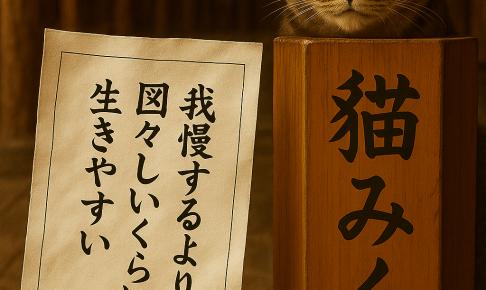 我慢するより
図々しいくら
生きやすい
猫み